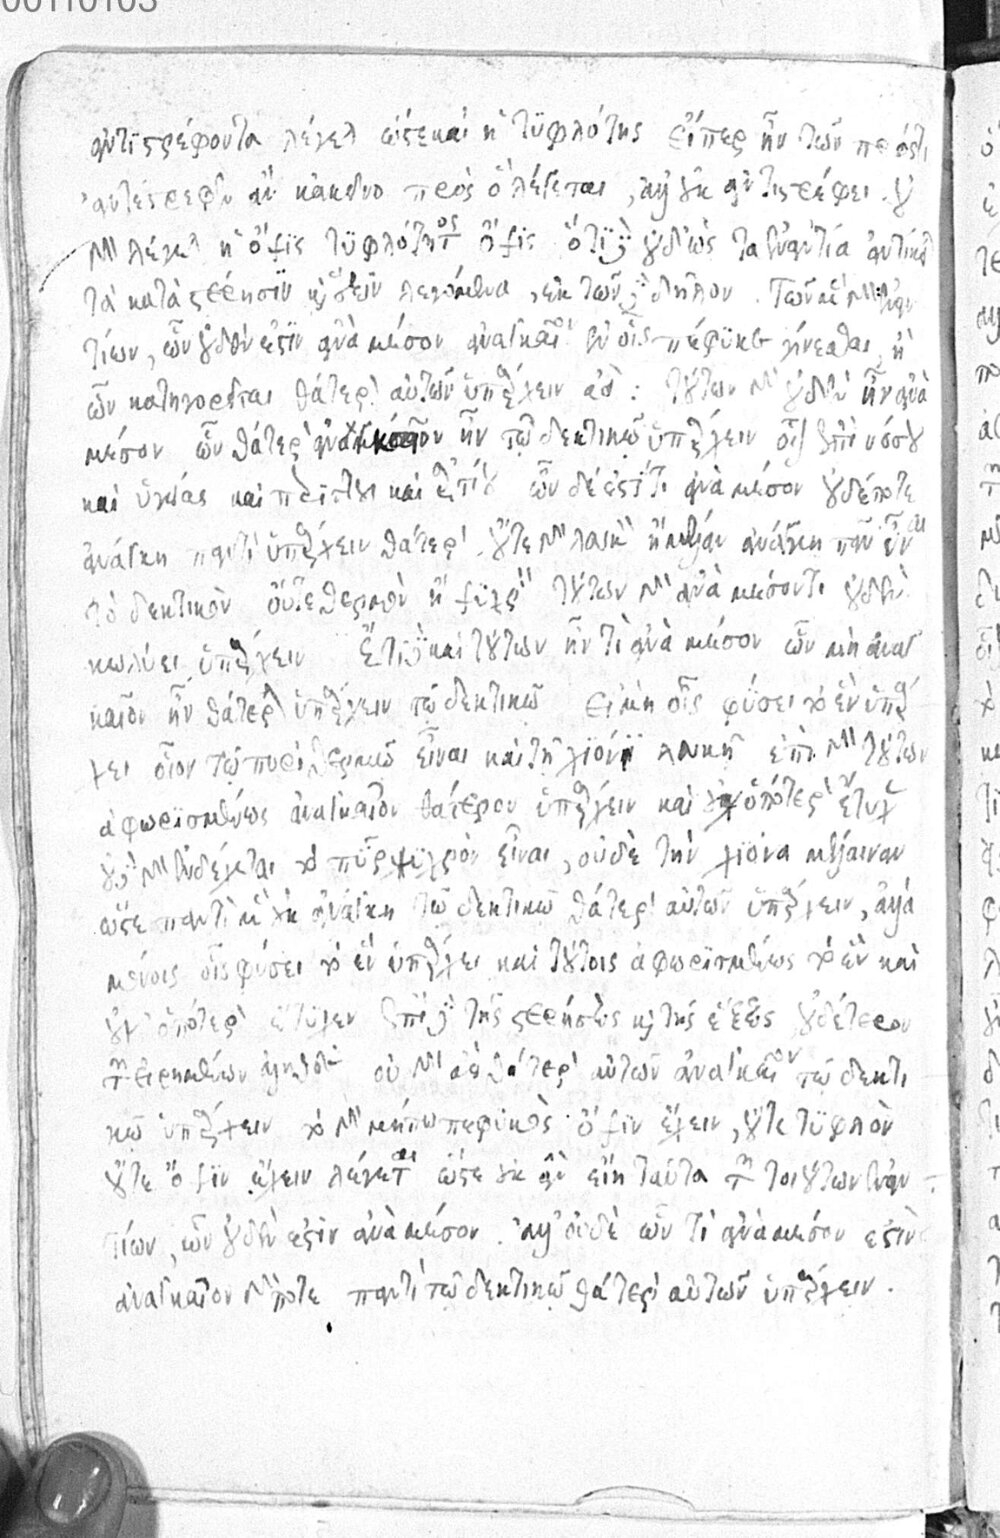 00110103
ἀντιστρέφοντα λέγεται ὥστε καὶ ἡ τυφλότης εἴπερ ἦν τῶν πρός τι
ἀντέστρεφεν ἂν κἀκεῖνο πρὸς ὃ λέγεται, ἀλλ' οὐκ ἀντιστρέφει. οὐ
γὰρ λέγεται ἡ ὄψις τυφλότητος ὄψις ὅτι δὲ οὐδ' ὡς τὰ ἐναντία ἀντίκειται
τὰ κατὰ στέρησιν καὶ ἕξιν λεγόμενα, ἐκ τῶνδε δῆλον. Τῶν μὲν γὰρ ἐναν
τίων, ὧν οὐδέν ἐστιν ἀνὰ μέσον ἀναγκαῖον ἐν οἷς πέφυκε γίνεσθαι ἢ
ὧν κατηγορεῖται θάτερον αὐτῶν ὑπάρχειν ἀεί: τούτων γὰρ οὐδὲν ἦν ἀνὰ
μέσον ὧν θάτερον ἀναγκαῖον ἦν τῷ δεκτικῷ ὑπάρχειν οἷον ἐπὶ νόσου
καὶ ὑγείας καὶ περιττοῦ καὶ ἀρτίου ὧν δέ ἐστί τι ἀνὰ μέσον οὐδέποτε
ἀνάγκη παντὶ ὑπάρχειν θάτερον. οὔτε γὰρ λευκὸν ἢ μέλαν ἀνάγκη πᾶν εἶναι
τὸ δεκτικὸν οὔτε θερμὸν ἢ ψυχρὸν τούτων γὰρ ἀνὰ μέσον τι οὐδὲν
κωλύει ὑπάρχειν Ἔτι δὲ καὶ τούτων ἦν τι ἀνὰ μέσον ὧν μὴ ἀναγ
καῖον ἦν θάτερον ὑπάρχειν τῷ δεκτικῷ εἰ μὴ οἷς φύσει τὸ ἓν ὑπάρ
χει οἷον τῷ πυρὶ θερμῷ εἶναι καὶ τῇ χιόνι λευκῇ ἐπὶ γὰρ τούτων
ἀφωρισμένως ἀναγκαῖον θάτερον ὑπάρχειν καὶ οὐχ ὁπότερον ἔτυχε
οὐ γὰρ ἐνδέχεται τὸ πῦρ ψυχρὸν εἶναι, οὐδὲ τὴν χιόνα μέλαιναν
ὥστε παντὶ μὲν οὐκ ἀνάγκη τῷ δεκτικῷ θάτερον αὐτῶν ὑπάρχειν, ἀλλὰ
μόνοις οἷς φύσει τὸ ἓν ὑπάρχει καὶ τούτοις ἀφωρισμένως τὸ ἓν καὶ
οὐχ ὁπότερον ἔτυχεν ἐπὶ δὲ τῆς στερήσεως καὶ τῆς ἕξεως οὐδέτερον
τῶν εἰρημένων ἀληθές οὐ γὰρ ἀεὶ θάτερον αὐτῶν ἀναγκαῖον τῷ δεκτι
κῷ ὑπάρχειν τὸ γὰρ μήπω πεφυκὸς ὄψιν ἔχειν, οὔτε τυφλὸν
οὔτε ὄψιν ἔχειν λέγεται ὥστε οὐκ ἂν εἴη ταῦτα τῶν τοιούτων ἐναν
τίων, ὧν οὐδέν ἐστιν ἀνὰ μέσον. Ἀλλ' οὐδὲ ὧν τι ἀνὰ μέσον ἐστὶν
ἀναγκαῖον γάρ ποτε παντὶ τῷ δεκτικῷ θάτερον αὐτῶν ὑπάρχειν.